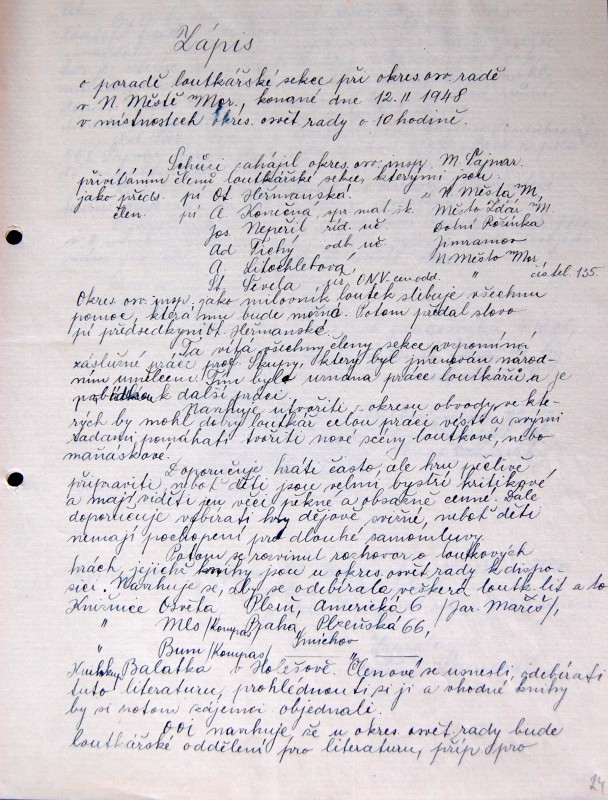 Zápis
o poradě loutkářské sekce při okres. osv. radě
v N. Městě Mor., konané dne 12. II 1948
v místnostech okres. osvět. rady o 10 hodině.
Schůzi zahájil okres. osv. insp. M. Šajnar.
přivítáním členů loutkářské sekce, kterými jsou
jako předs. pí Ot. Heřmanská. z N. Města M.
člen. pí A. Konečná, spr. mat. šk. Město Žďár M
Jos. Nepeřil říd. uč Dolní Rožínka
Ad Tichý odb. uč Jimramov
A. Litochlebová, N Město Mor.
St. Teveta ONV. čís tel. 135.
Okres. osv. insp. jako milovník loutek slibuje všechnu
pomoc, která mu bude možná. Potom předal slovo
pí předsedkyni Ot. Heřmanské.
Ta vítá všechny členy sekce vzpomíná
záslužné práce prof. Skupy, který byl jmenován národ-
ním umělcem. Tím byla uznána práce loutkářů a je
pobídkou k další práci.
Navrhuje utvořiti z okresu obvody, ve kte-
rých by mohl dobrý loutkář celou práci vésti a svými
radami pomáhati tvořiti nové scény loutkové, nebo
maňáskové.
Doporučuje hráti často, ale hru pečlivě
připraviti, neboť děti jsou velmi bystří kritikové
a mají viděti jen věci pěkné a obsažně cenné. Dále
doporučuje vybírati hry dějově svižné, neboť děti
nemají pochopení pro dlouhé samomluvy.
Potom se rozvinul rozhovor o loutkových
hrách, jejichž knihy jsou u okres. osvět. rady k dispo-
sici. Navrhuje se, aby se odebírala veškerá loutk. lit a to
Knižnice Osvěta Plzeň, Americká 6 /Jar. Mareš/,
" Mls /Kompas/ Praha, Plzeňská 66,
" Bum /Kompas/ Smíchov
Balatka v Holešově. Členové se usnesli, odebírati
tuto literaturu, prohlédnouti si ji a vhodné knihy
by si potom zájemci objednali.
OOI navrhuje, že u okres. osvět. rady bude
loutkářské oddělení pro literaturu, příp. pro
24